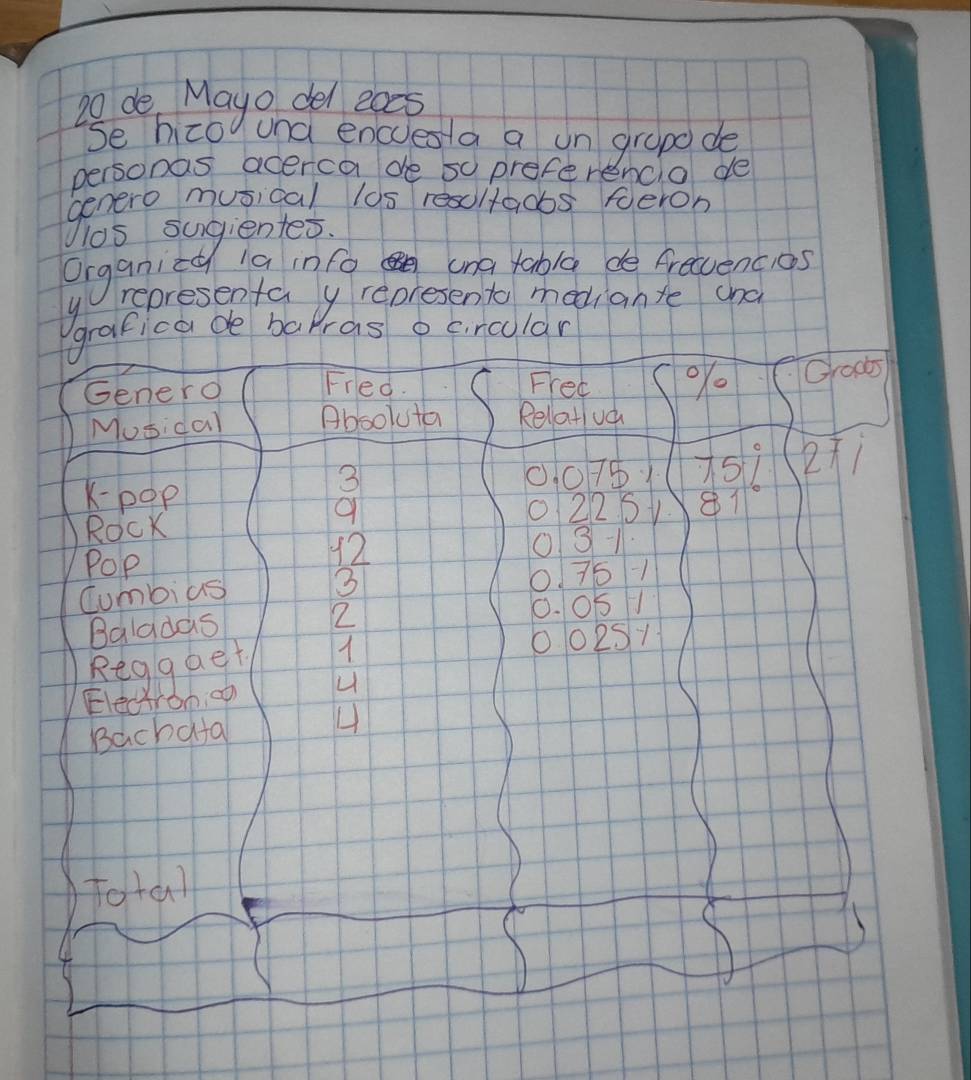 20 de Mayo del 2025
Se hizo una encuesta a un grupo de
personas acerca de su preferencia de
genero musical los resultados fueron
los sugientes.
Organiza la info una tabla de frecuencias
y representa y representa mediante una
grafica de barras o circular
Genero Musical Frec. Absoluta Frec Relativa % Grados
K-pop 3 0.075% 75% 27%
Rock 9 0.225% 81°
Pop 12 0.3%
Cumbias 3 0.75%
Baladas 2 0.05%
Reggaet. 1 0.025%
Electronica 4
Bachata 4
Total